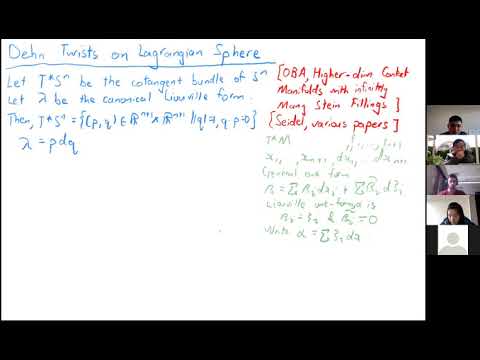 Dehn Twists on Lagrangian Sphere
Let T*Sⁿ be the cotangent bundle of Sⁿ
Let λ be the canonical Liouville form.
Then, T*Sⁿ = {(p, q) ∈ ℝⁿ⁺¹ × ℝⁿ⁺¹ | |q|=1, q·p=0}
λ = pdq
[OBA, Higher-dim Contact
Manifolds with infinitely
Many Stein Fillings ]
[Seidel, various papers ]
T*M
x₁, , xₙ₊₁, dx₁, ... dxₙ₊₁
General one form
Liouville one-form is
& = 0
Write α = Σ ξᵢ dx